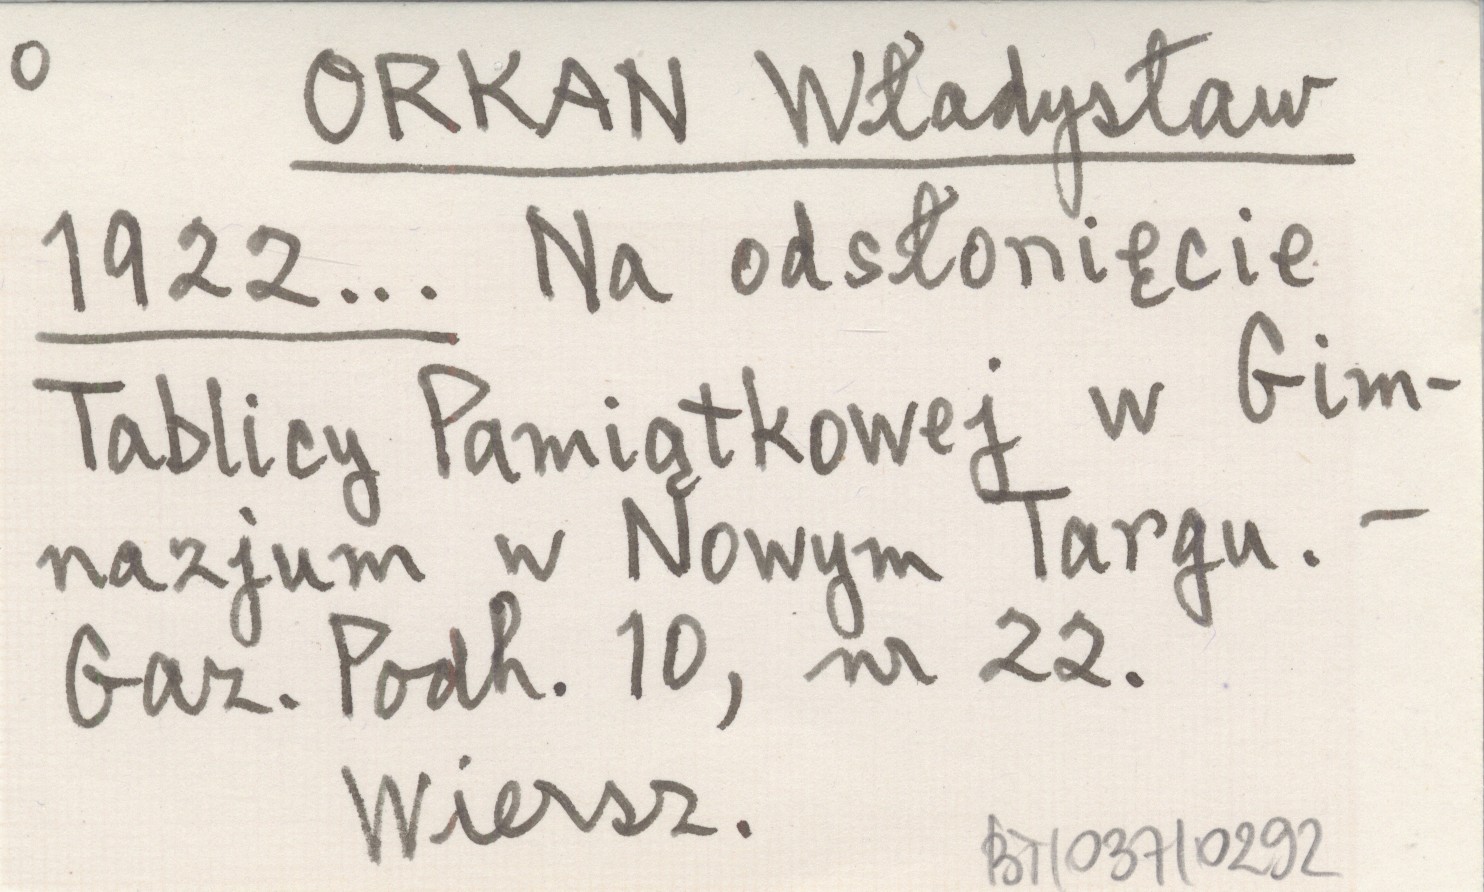 O
ORKAN Władysław
1922... Na odsłonięcie
Tablicy Pamiątkowej w Gim-
nazjum w Nowym Targu. -
Gaz. Podh. 10, nr 22.
Wiersz.
BT/037/0292